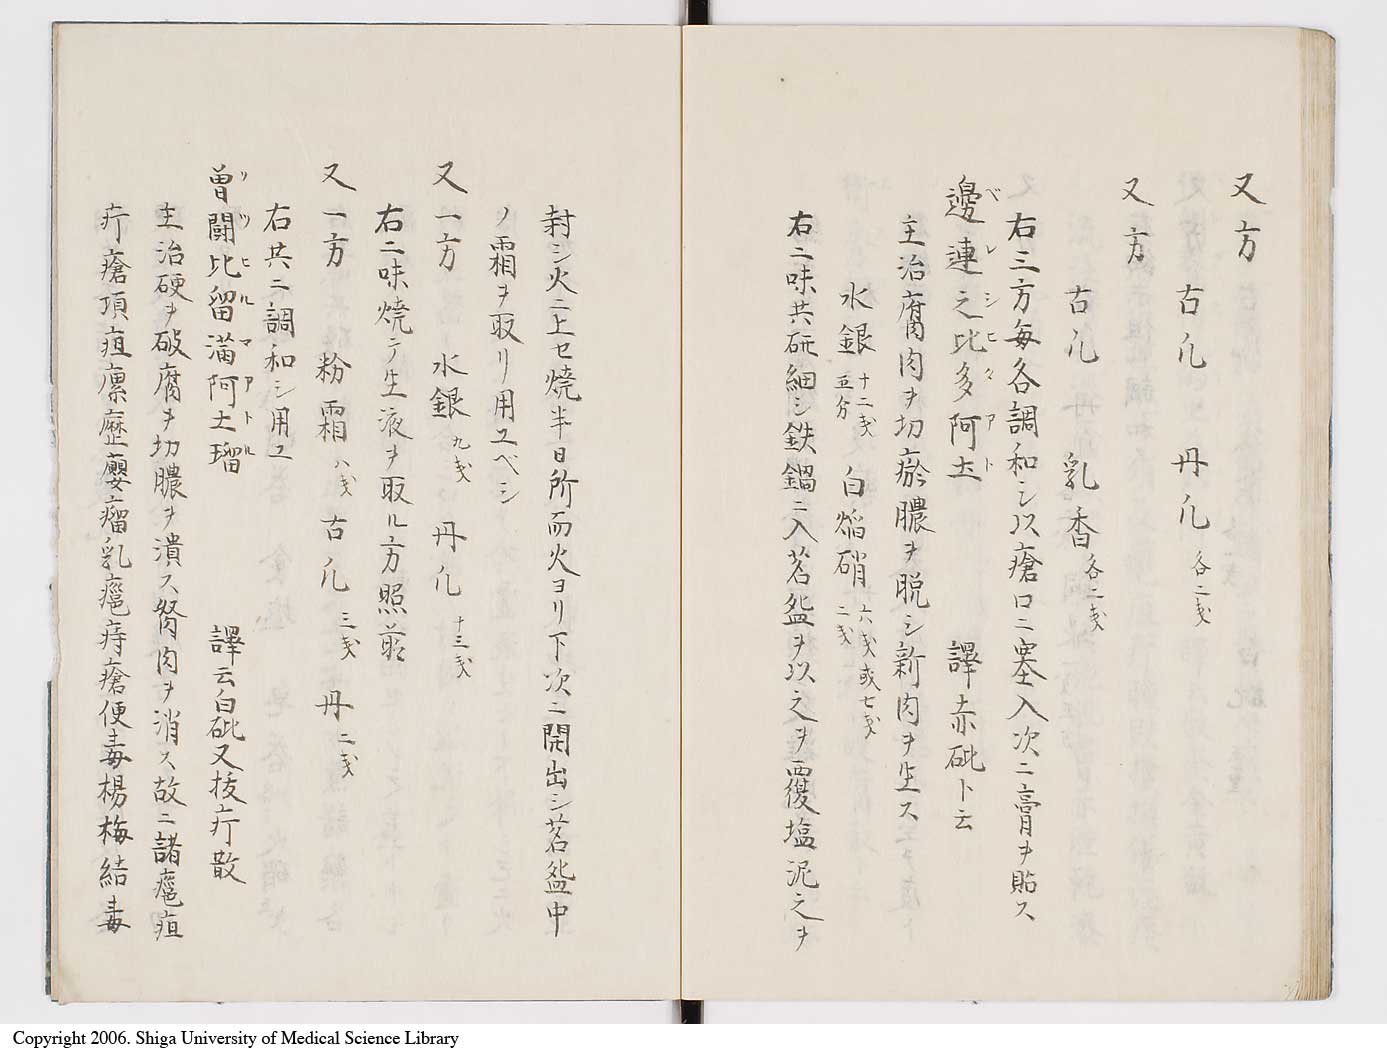 又方
古凢 丹凢 各二戔
又方
古凢 乳香 各二戔
右三方毎各調和シ以瘡口ニ塞入次ニ膏ヲ貼ス
邊連之比多阿土 譯赤砒ト云
ベレシヒタアト
主治腐肉ヲ切瘀膿ヲ脱シ新肉ヲ生ス
水銀 十二戔五分 白焔硝 六戔或七戔二戔
右二味共研細シ鉄鍋ニ入茗盌ヲ以之ヲ覆塩泥之ヲ
封シ火ニ上セ焼半日所而火ヨリ下次ニ開出シ茗盌中
ノ霜ヲ取リ用ユベシ
又一方 水銀 九戔 丹凢 十三戔
右二味焼テ生液ヲ取ル方照前
又一方 粉霜 八戔 古凢 三戔 丹 二戔
右共ニ調和シ用ユ
曽闘比留満阿土瑠 譯云白砒又抜疔散
リツヒルマアトル
主治硬ヲ破腐ヲ切膿ヲ潰ス胬肉ヲ消ス故ニ諸瘡疽
疔瘡項疽瘰癧癭瘤乳瘡痔瘡便毒楊梅結毒
Copyright 2006. Shiga University of Medical Science Library